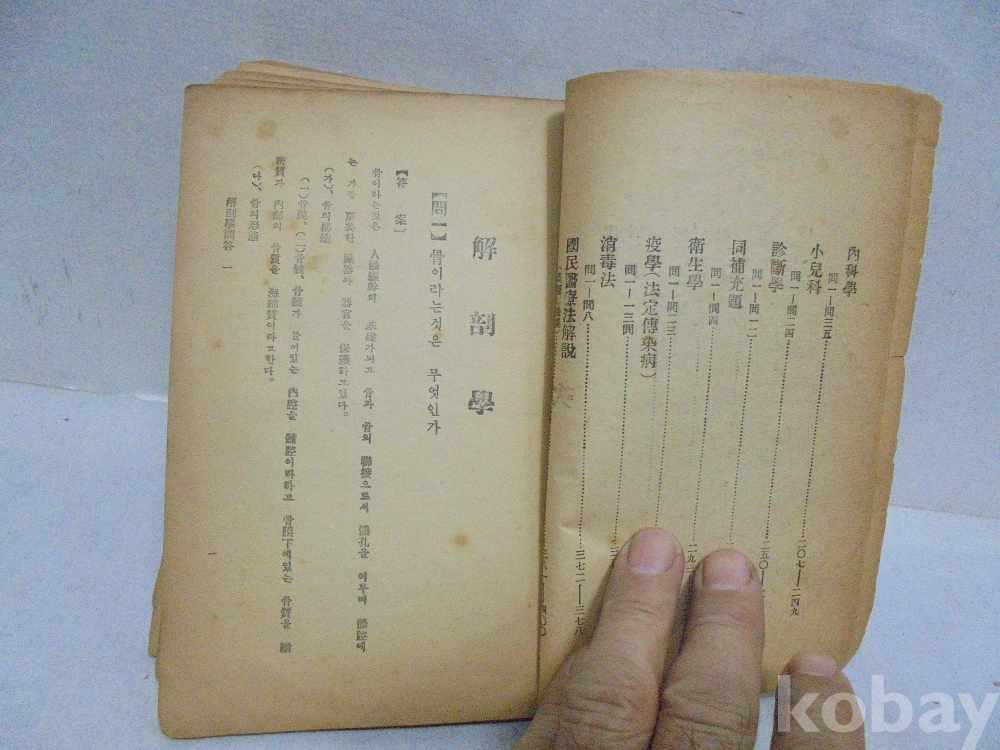 內科學
問一—問三五 二〇七—二四九
小兒科
問一—問二四
診斷學
問一—問一二 二五〇
同補充題
問一—問四
衛生學
問一—問二三 二九
疫學(法定傳染病)
問一—一三問
消毒法
問一—問八 三七二—三七八
國民醫療法解說
解剖學
【問一】骨이라는것은 무엇인가
【答案】
骨이라는것은 人體軀幹의 基礎가되고 骨과 骨의 聯接으로서 體孔을 이루며 體腔에
는 가장 重要한 臟器와 器官을 保護하고있다。
(가)、骨의構造
(一)骨膜、(二)骨髓、骨髓가 들어있는 內腔을 髓腔이라하고 骨膜下에있는 骨質을 緻
密質과 內部의 骨質을 海綿質이라고한다。
(나)、骨의形態
解剖學問答 一
一
kobay